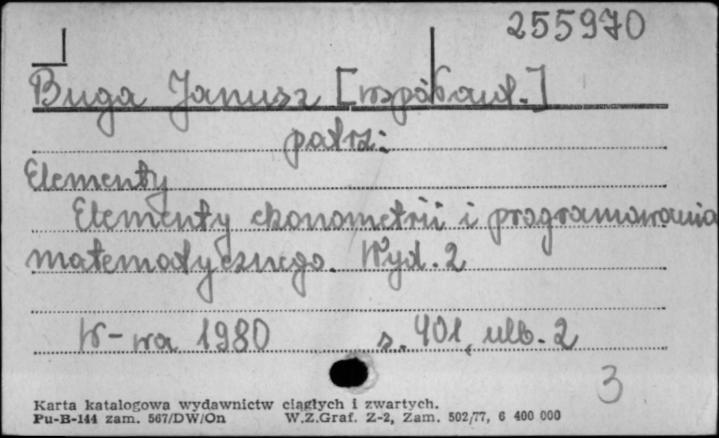 255970
Buga Janusz [współaut.]
patrz:
Elementy
Elementy ekonometrii i programowania
matematycznego. Wyd. 2
W-wa 1980 s. 401, ulb. 2
3
Karta katalogowa wydawnictw ciągłych i zwartych.
Pu-B-144 zam. 567/DW/On W.Z.Graf. Z-2, Zam. 502/77, 6 400 000